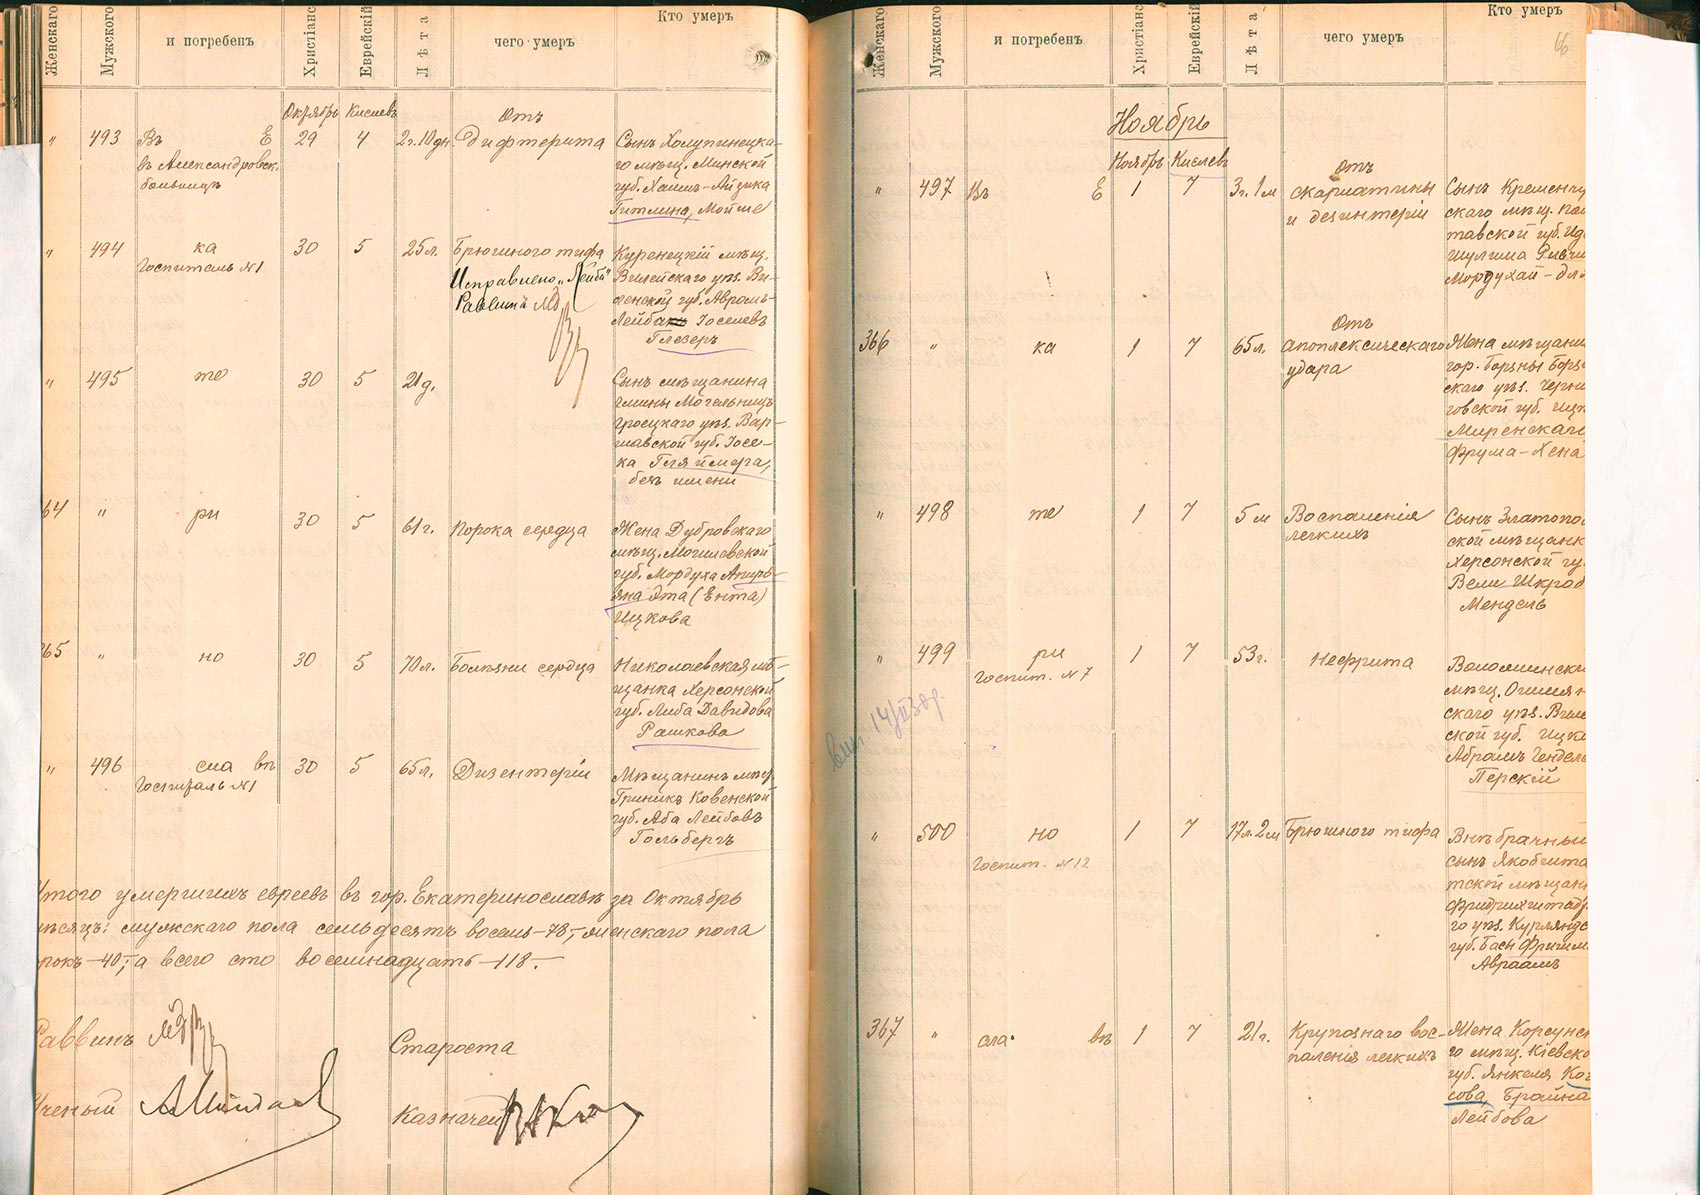 Женскаго
Мужскаго
и погребенъ
Христіанс
Еврейскій
Лѣта
чего умеръ
Кто умеръ
Октябрь Кислевъ
Отъ
" 493 Въ Е 29 4 2г.10дн Дифтерита
въ Александровск.
больницѣ
Сынъ Холупиницка-
го мѣщ. Минской
губ. Хаимъ-Айзика
Гитлина, Мойше
" 494 ка 30 5 25л. Брюшного тифа
Госпиталь №1
Исправлено "Лейба"
Раввинъ
Куренецкій мѣщ.
Вилейскаго уѣз. Ви-
ленской губ. Авромъ-
Лейба Іоселевъ
Глезеръ
" 495 те 30 5 21д.
Сынъ мѣщанина
гмины Могельницъ
Гроецкаго уѣз. Вар-
шавской губ. Іосе-
ка Гляймера,
безъ имени
64 " ри 30 5 61г. Порока сердца
Жена Дубровскаго
мѣщ. Могилевской
губ. Мордуха
Эта (Ента)
Ицкова
365 " но 30 5 70л. Болѣзни сердца
Николаевская мѣ-
щанка Херсонской
губ. Либа Давидова
Рашкова
" 496 сла въ 30 5 65л. Дизентеріи
Госпиталь №1
Мѣщанинъ мѣст.
Гринкъ Ковенской
губ. Аба Лейбовъ
Гольбергъ
Итого умершихъ евреевъ въ гор. Екатеринославѣ за Октябрь
мѣсяцъ: мужскаго пола семьдесятъ восемь-78-, женскаго пола
сорокъ-40-, а всего сто восемнадцать-118-.
Раввинъ
Староста
Ученый
Казначей
Женскаго
Мужскаго
и погребенъ
Христіанс
Еврейскій
Лѣта
чего умеръ
Кто умеръ
66
Ноябрь
Ноябрь Кислевъ
отъ
" 497 Въ Е 1 7 3г.1м скарлатины
и дезинтеріи
Сынъ Кременчу
скаго мѣщ. Пол
тавской губ.
Шулима
Мордухай-
Отъ
366 " ка 1 7 65л. апоплексическаго
удара
Жена мѣщани
гор. Борзны Борз
скаго уѣз. Черни
говской губ. Ицк
Миренскаго
Фрума-Хена
" 498 те 1 7 5м Воспаленія
легкихъ
Сынъ Златопо
ской мѣщанк
Херсонской гу
Вели Шкроб
Мендель
" 499 ри 1 7 53г. Нефрита
Госпит. №7
Воложински
мѣщ. Ошмян
скаго уѣз. Виле
ской губ. Ицк
Абрамъ Гендель
Перскій
" 500 но 1 7 17л.2м Брюшного тифа
Госпит. №12
Внѣбрачный
сынъ Якобшта
тской мѣщан
Фридрихштадт
го уѣз. Курляндс
губ. Баси Фришм
Авраамъ
367 " сла въ 1 7 21г. Крупознаго вос-
паленія легкихъ
Жена Корсунск
го мѣщ. Кіевско
губ. Янкеля Ког
сова, Брайна
Лейбова